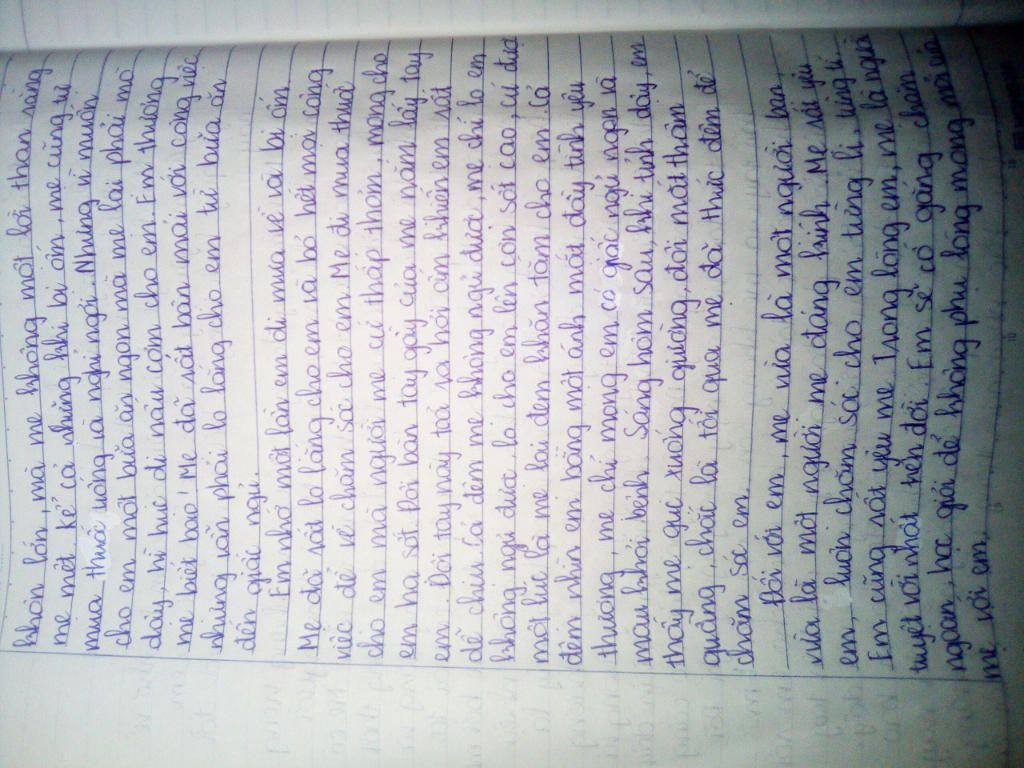 khôn lớn, mà mẹ không một lời than rằng
mẹ mệt kể cả những khi bị ốm, mẹ cũng tự
mua thuốc uống và nghỉ ngơi. Nhưng vì muốn
cho em một bữa ăn ngon mà mẹ lại phải mò
dậy, hì hục đi nấu cơm cho em. Em thương
mẹ biết bao! Mẹ đã rất bận mải với công việc
nhưng vẫn phải lo lắng cho em từ bữa ăn
đến giấc ngủ.
Em nhớ một lần em đi mưa về và bị ốm.
Mẹ đã rất lo lắng cho em và bỏ hết mọi công
việc để về chăm sóc cho em. Mẹ đi mua thuốc
cho em mà người mẹ cứ thấp thỏm, mong cho
em hạ sốt. Đôi bàn tay gầy của mẹ nắm lấy tay
em. Đôi tay này tỏa ra hơi ấm khiến em rất
dễ chịu. Cả đêm mẹ không ngủ được, mẹ chỉ lo em
không ngủ được lại cho em lên cơn sốt cao, cứ được
một lúc là mẹ lại đem khăn tắm cho em. Cả
đêm nhìn em bằng một ánh mắt đầy tình yêu
thương, mẹ chỉ mong em có giấc ngủ ngon và
mau khỏi bệnh. Sáng hôm sau, khi tỉnh dậy, em
thấy mẹ gục xuống giường, đôi mắt thâm
quầng, chắc là tối qua mẹ đã thức đêm để
chăm sóc em.
Đối với em, mẹ vừa là một người bạn,
vừa là một người mẹ đáng kính. Mẹ rất yêu
em, luôn chăm sóc cho em từng li, từng tí.
Em cũng rất yêu mẹ. Trong lòng em, mẹ là người
tuyệt vời nhất trên đời. Em sẽ cố gắng chăm
ngoan, học giỏi để không phụ lòng mong mỏi của
mẹ với em.